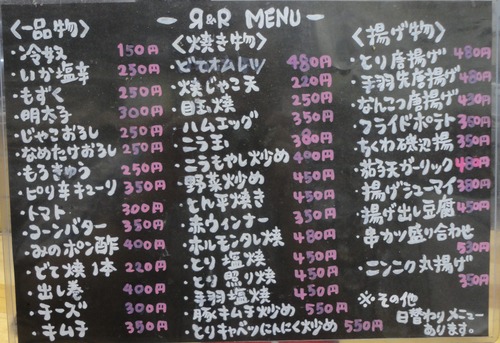 - R&R MENU -
<一品物>
・冷奴 150円
・いか塩辛 250円
・もずく 250円
・明太子 300円
・じゃこおろし 250円
・なめたけおろし 250円
・もろきゅう 250円
・ピリ辛キューリ 350円
・トマト 300円
・コーンバター 350円
・みのポン酢 400円
・どて焼1本 220円
・出し巻 400円
・チーズ 300円
・キムチ 350円
<焼き物>
・どてオムレツ 480円
・焼じゃこ天 220円
・目玉焼 250円
・ハムエッグ 350円
・ニラ玉 380円
・こうもやし炒め 400円
・野菜炒め 450円
・とん平焼き 450円
・赤ウィンナー 350円
・ホルモンタレ焼 480円
・とり塩焼 450円
・とり照り焼 450円
・手羽塩焼 450円
・豚キムチ炒め 550円
・とりキャベツにんにく炒め 550円
<揚げ物>
・とり唐揚げ 480円
・手羽先唐揚げ 450円
・なんこつ唐揚げ 430円
・フライドポテト 350円
・ちくわ磯辺揚 350円
・茄子天ガーリック 480円
・揚げシューマイ 380円
・揚げ出し豆腐 450円
・串カツ盛り合わせ 530円
・ニンニク丸揚げ 350円
※その他
日替わりメニュー
あります。